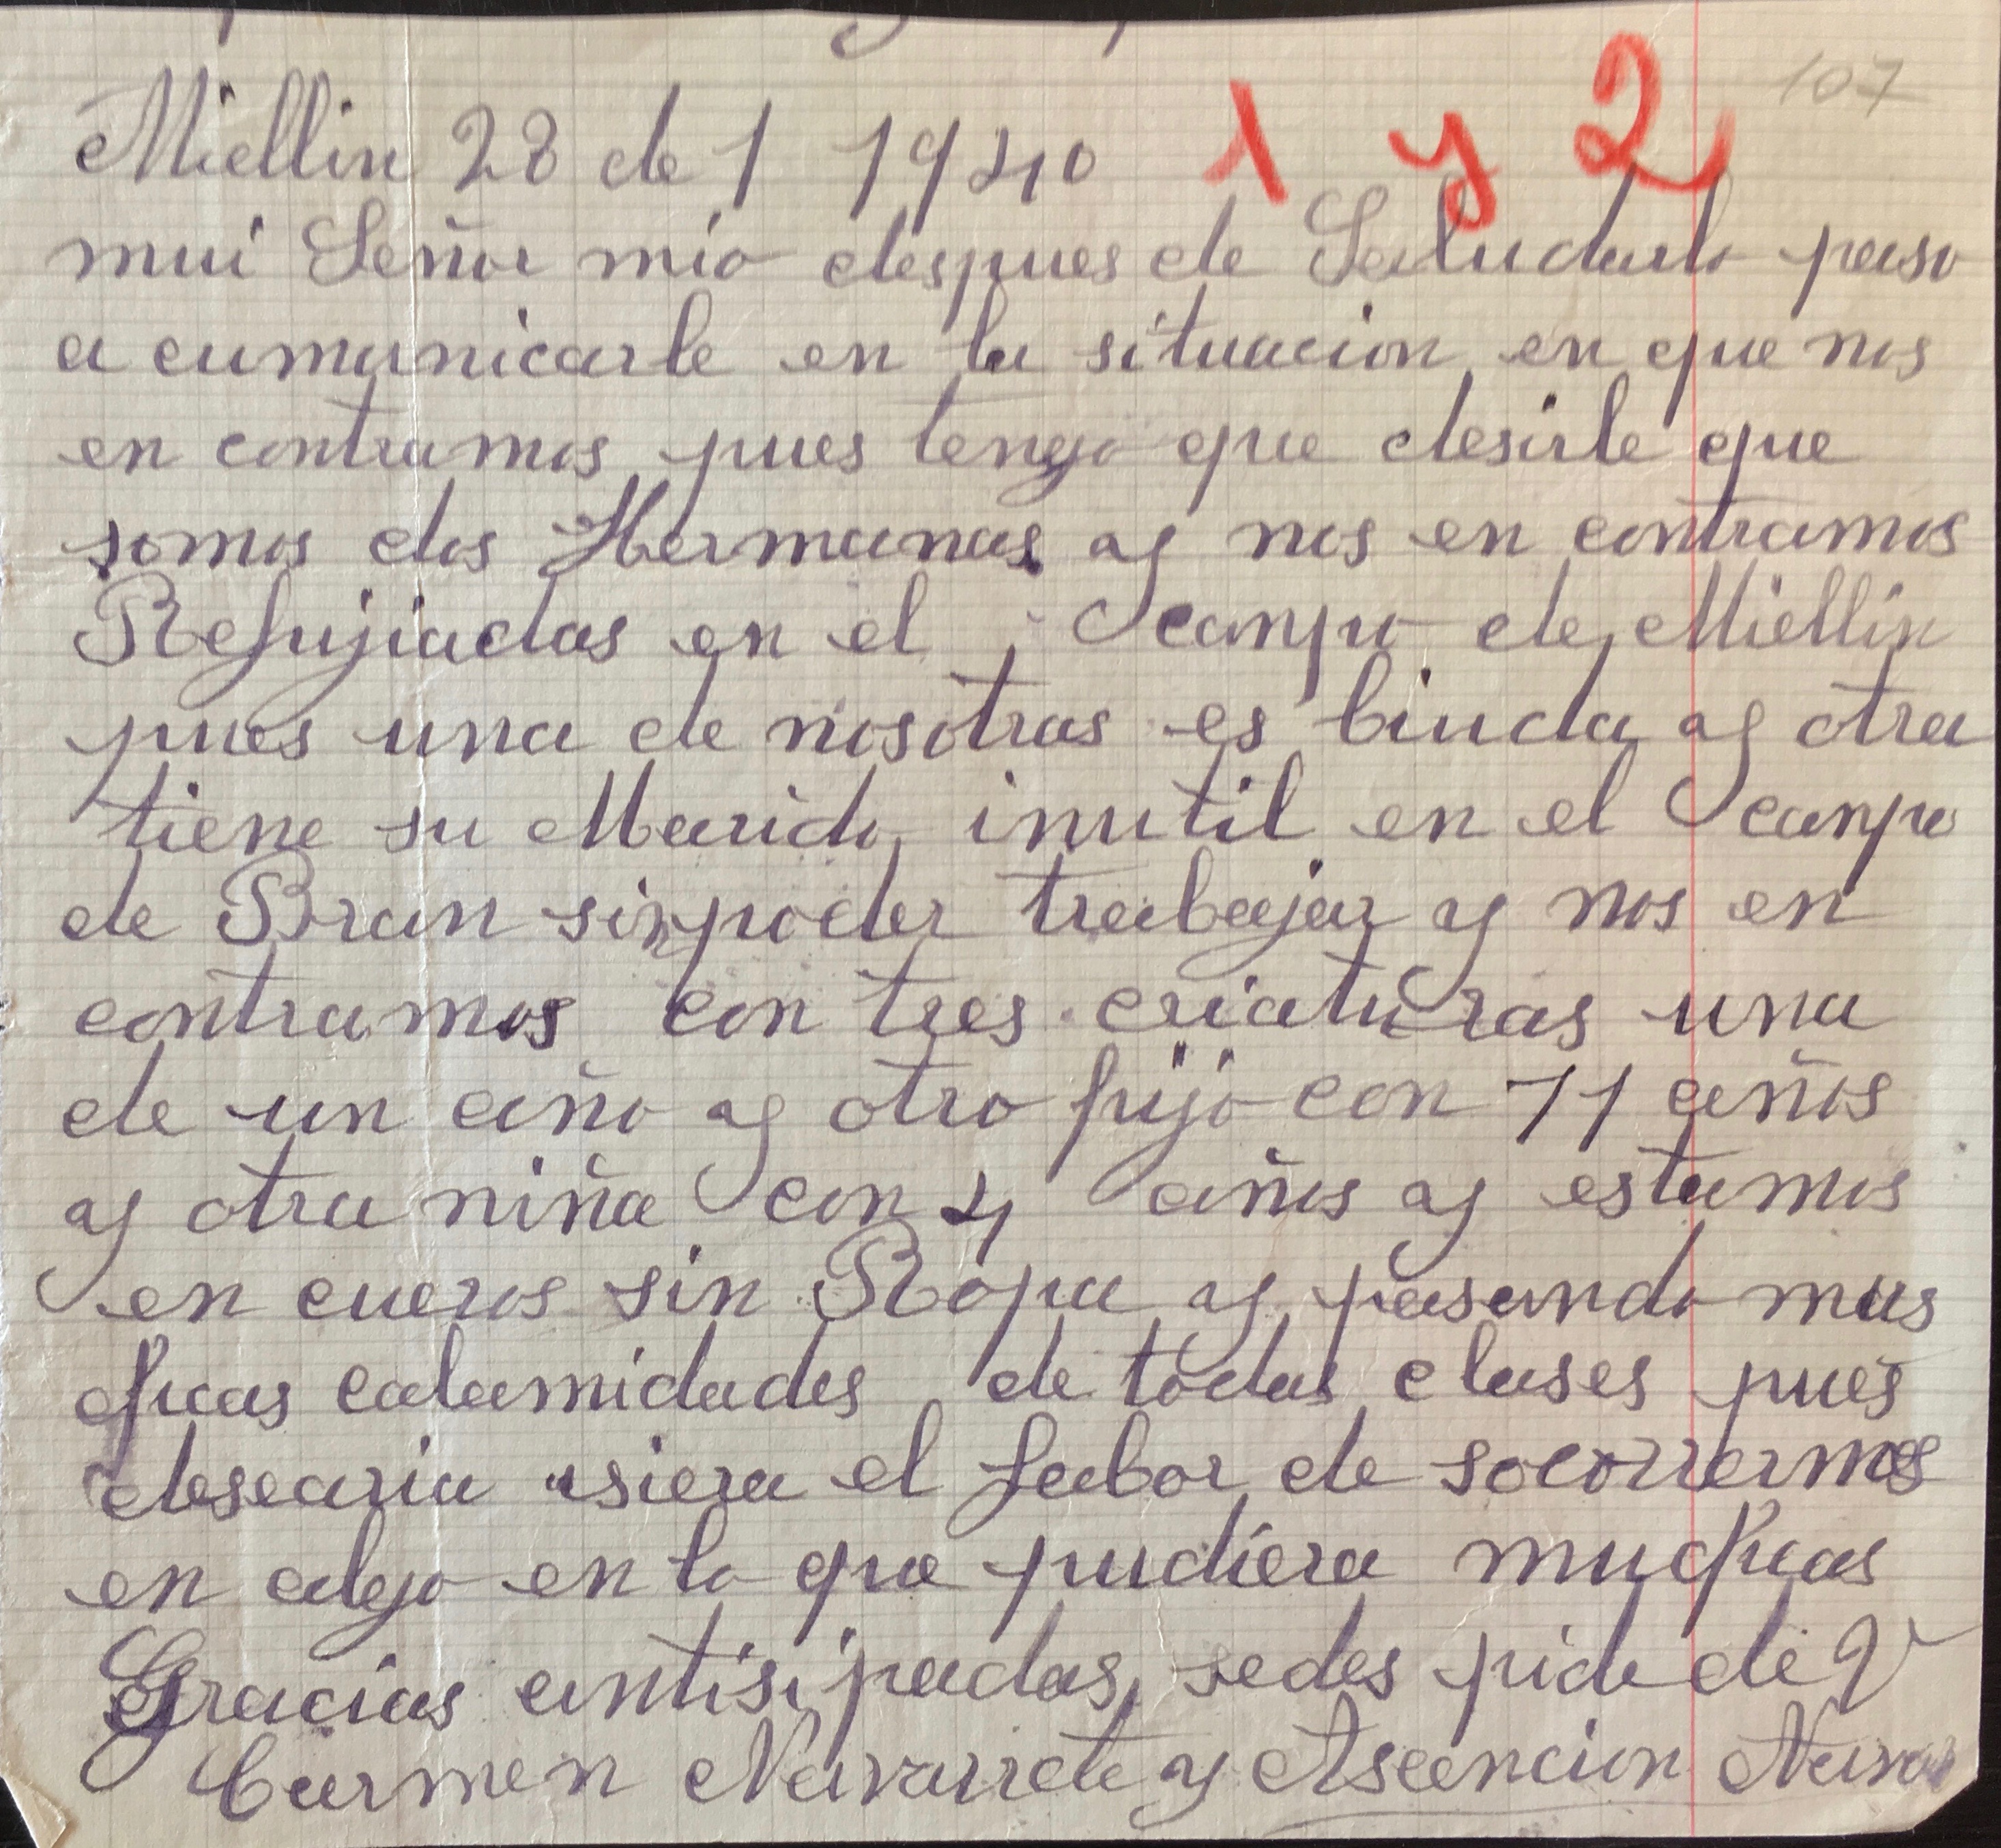 107
1 y 2
Miellin 28 de 1 1940
mui Señor mio despues de Saludarlo paso
a cumunicarle en la situacion en que nos
en contramos pues tengo que desirle que
somos dos Hermanas y nos en contramos
Refujiadas en el canpo de Miellin
pues una de nosotras es biuda y otra
tiene su Marido inutil en el canpo
de Bran sin poder trabajar y nos en
contramos con tres criaturas una
de un año y otro hijo con 11 años
y otra niña con 4 años y estamos
en cueros sin Ropa y pasando mu
chas calamidades de todas clases pues
desearia isiera el fabor de socorrernos
en algo en lo que pudiera muchas
Gracias antisipadas sedes pide de V
Carmen Navarrete y Ascencion